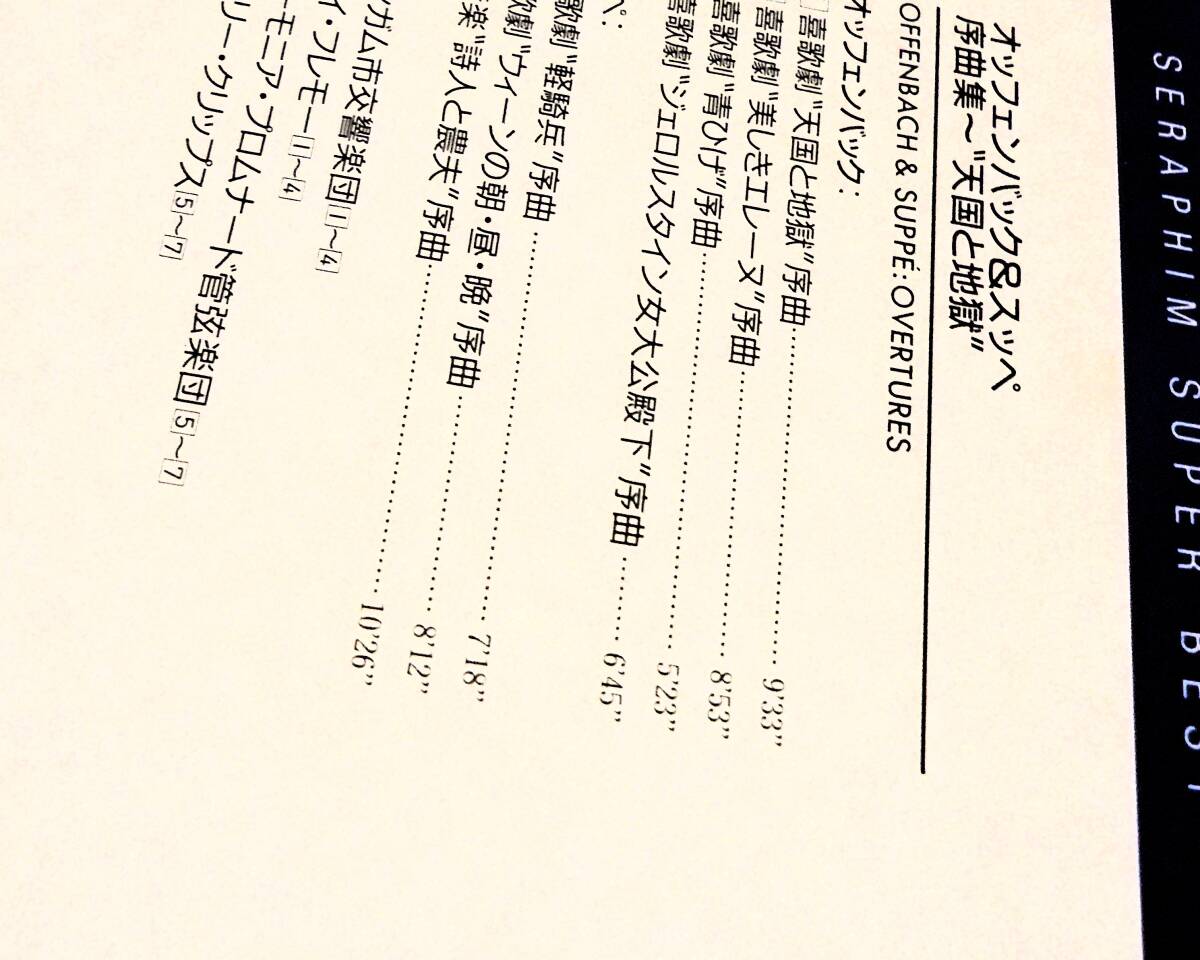 SERAPHIM SUPER BEST
オッフェンバック&スッペ
序曲集～“天国と地獄”
OFFENBACH & SUPPÉ: OVERTURES
オッフェンバック:
喜歌劇“天国と地獄”序曲 9'33"
喜歌劇“美しきエレーヌ”序曲 8'53"
喜歌劇“青ひげ”序曲 5'23"
喜歌劇“ジェロルスタイン女大公殿下”序曲 6'45"
ペ:
歌劇“軽騎兵”序曲 7'18"
歌劇“ウィーンの朝・昼・晩”序曲 8'12"
楽“詩人と農夫”序曲 10'26"
ンガム市交響楽団1～4
イ・フレモー1～4
ーモニア・プロムナード管弦楽団5～7
リー・クリップス5～7